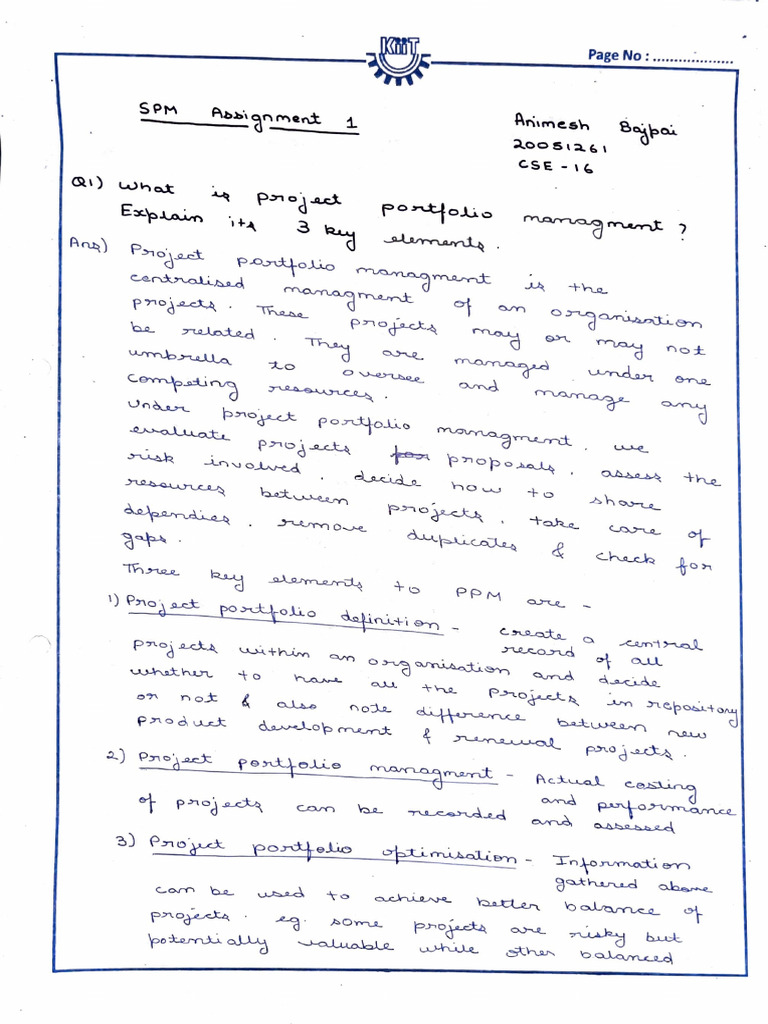 KiiT
Page No : ...................
SPM Assignment 1
Animesh Bajpai
20051261
CSE - 16
Q1) What is project portfolio managment ?
Explain its 3 key elements.
Ans) Project portfolio managment is the
centralised managment of an organisation
projects. These projects may or may not
be related. They are managed under one
umbrella to oversee and manage any
competing resources.
Under project portfolio managment, we
evaluate projects for proposals, assess the
risk involved, decide how to share
resources between projects, take care of
dependies, remove duplicates & check for
gaps.
Three key elements to PPM are -
1) Project portfolio definition - create a central
record of all
projects within an organisation and decide
whether to have all the projects in repository
or not & also note difference between new
product development & renewal projects.
2) Project portfolio managment - Actual costing
and performance
of projects can be recorded and assessed
3) Project portfolio optimisation - Information
gathered above
can be used to achieve better balance of
projects. eg. some projects are risky but
potentially valuable while other balanced